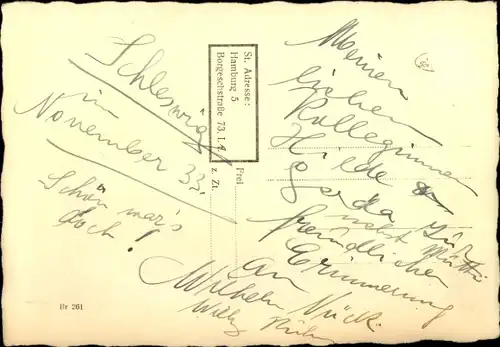 Schleswig
im
November 33.
Schön war's
doch!
St. Adresse:
Hamburg 5
Borgeschstraße 73. I. 4.
Frei
z. Zt.
Meinen
lieben
Kolleginnen
Hilde
Gerda
nebst Mutti
freundlichen
Erinnerung
an
Wilhelm
Willy
Br 261